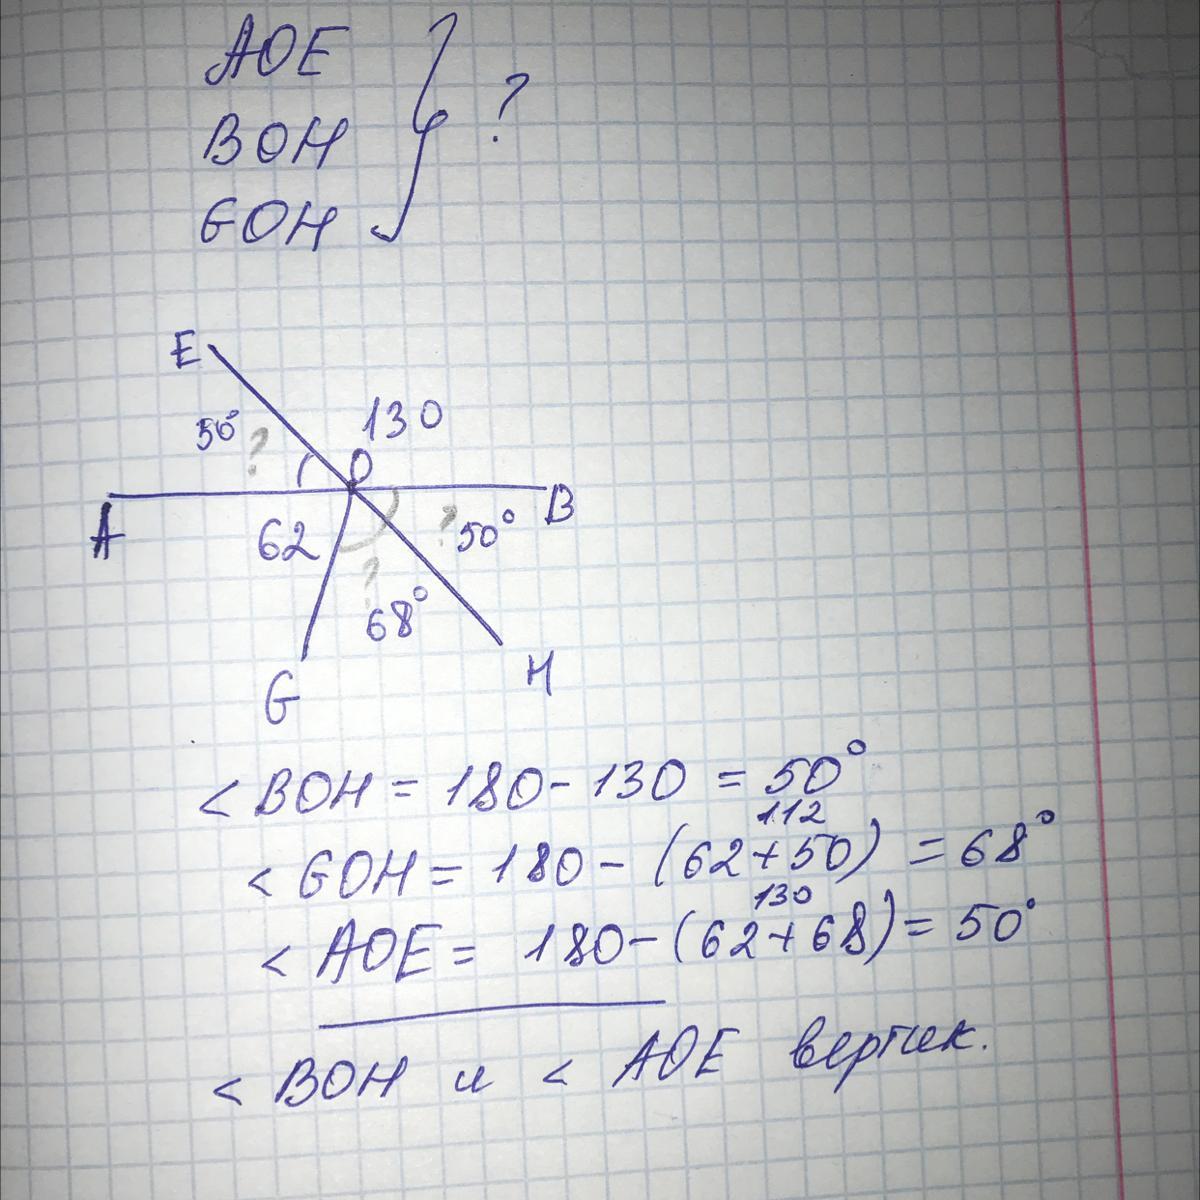 AOE
BOH
GOH
?
E
50° ?
130
O
A
62
? 50°
B
?
68°
G
H
< BOH = 180 - 130 = 50°
112
< GOH = 180 - (62 + 50) = 68°
130
< AOE = 180 - (62 + 68) = 50°
< BOH и < AOE вертик.